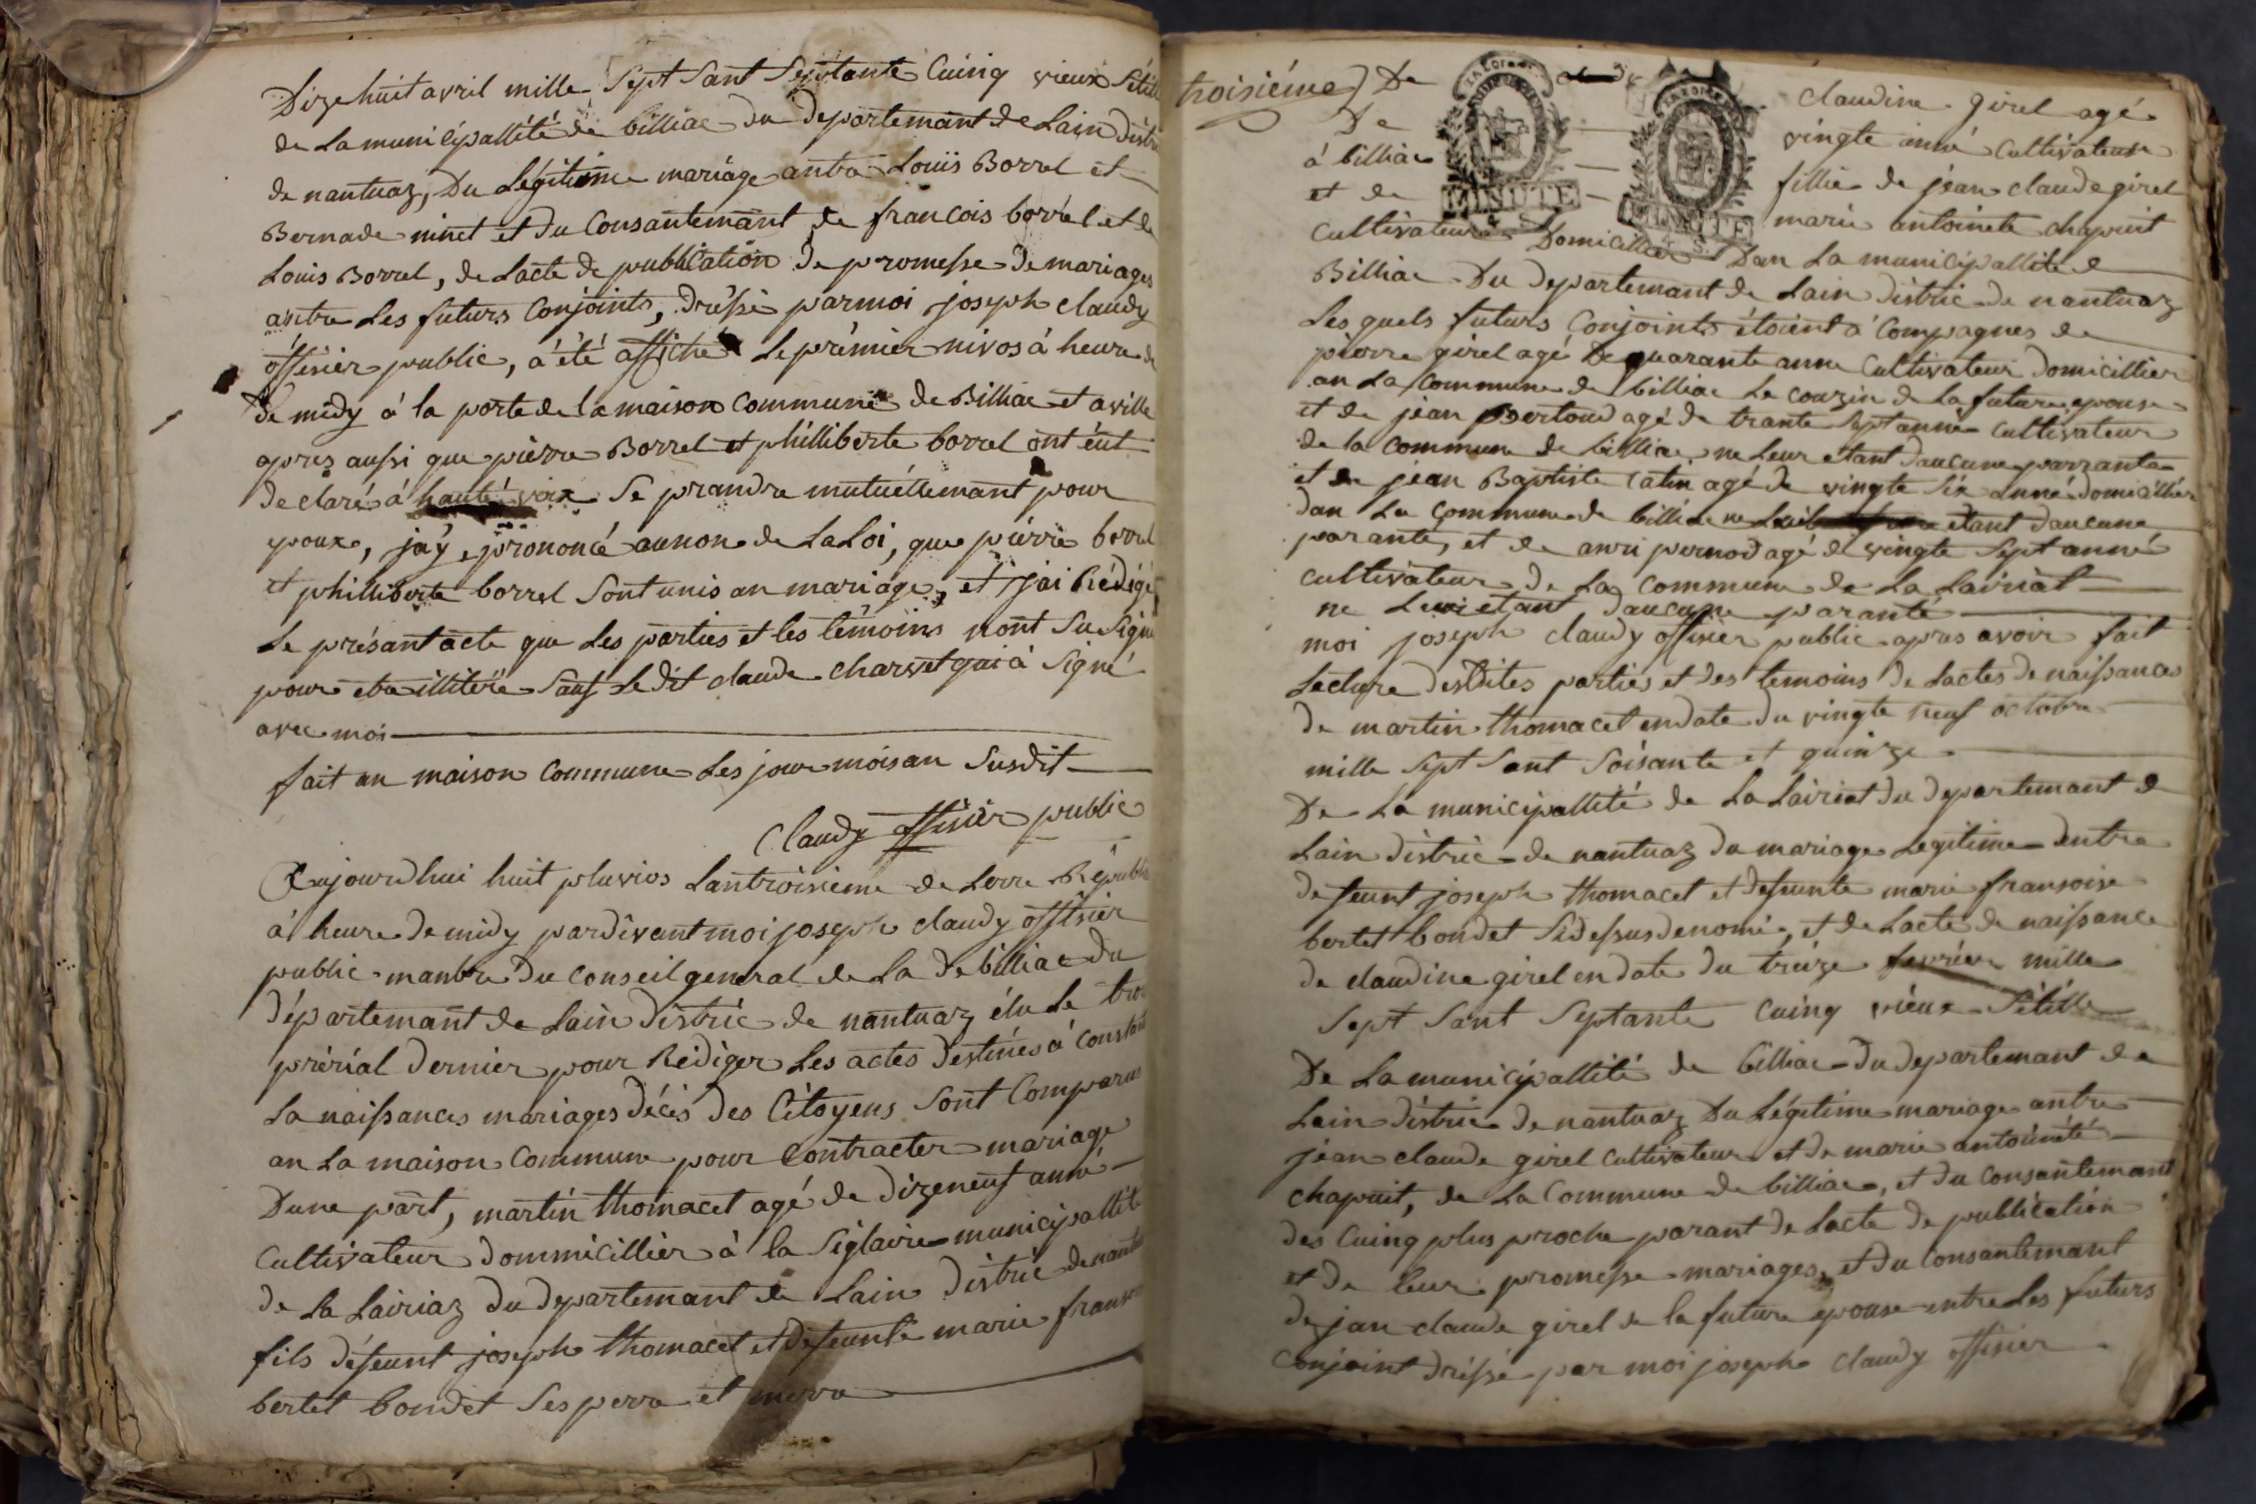 Dize huit avril mille Sept Sant Septante Cuinq vieux Sétill
de La municipallité de billiac du departemant de Lain distri
de nantuaz, Du Légitime mariage antra Louis Borrel et
Bernade ninet et du Consantemant de francois borrel et de
Louis Borrel, de Lacte de publication de promesse de mariages
antra Les futurs Conjoints, drésse par moi joseph claudy
offisier public, a été affiché Le prémier nivos à heure de
de midy à la porte de la maison commune de Billiac et aville
apres aussi que pièrre Borrel et philliberte borrel ont éut
de claré à hauté voix Se prandre mutuéllemant pour
epoux, jay prononcé aunon de La Loi, que pièrre borrel
et philliberte borrel Sont unis an mariage, et jai Rédigé
Le présant acte que Les parties et les témoins nont Su Signé
pour etre illitere Sauf Le dit claude charvet qui à Signé
avec moi
fait an maison commune Les jour mois an Susdit
Claudy offisier public
Aujourdhui huit pluvios Lantroisieme de Lerre Republi
à heure de midy pardevant moi joseph claudy offisier
public manbre du conseil general de La de billiac du
départemant de Lain distric de nantuaz élu Le tro
prérial dernier pour Rédiger Les actes destinés à Constat
La naissances mariages décès des Citoyens Sont Comparus
an La maison Commune pour Contracter mariage
Dune part, martin thomacet agé de dizeneuf anné
Cultivateur dommicillier à la Siglaire municipallité
de La Lairiaz du departemant de Lain distric de nant
fils défeunt joseph thomacet et defeunte marie franso
bertet bondet Ses perre et merre
troisiéme De claudine girel agé
De vingte anné Cultivateur
à billiac fillie de jéan claude girel
et de marie antoinete chapuit
Cultivateur Domicillier Dan La municipallité de
Billiac Du departemant de Lain distric de nantuaz
Les quels futurs Conjoints étoient à Compagnes de
pierre girel agé De quarante anne Cultivateur Domicillier
an La Commune de billiac Le couzin de La future epouse
et de jéan Bertoud agé de trante Sept anné Cultivateur
de la Commune de billiac ne Leur etant daucune parranta
et de jéan Baptiste Catin agé de vingte Six anné domicillier
dan La Commune de billiac ne etant daucune
parante, et de anri pernod agé de vingte Sept anné
Cultivateur de La commune de La Lairiat
ne Leur etant daucune paranté
moi joseph claudy offisier public apres avoir fait
Lecture desdites parties et des temoins de Lactes de naissances
de martin thomacet endate du vingte neuf octobre
mille Sept Sant Soisante et quinze
De La municipallité de La Lairiat du departemant de
Lain distric de nantuaz du mariage Legitime dentre
defeunt joseph thomacet et defeunte marie fransoise
bertet bondet Sidessus denomé, et de Lacte de naissance
de claudine girel endate du treize fevrier mille
Sept Sant Septante Cuinq vieux Sétille
De La municipallité de billiac du departemant de
Lain distric de nantuaz Du Légitime mariage antre
jéan claude girel Cultivateur et de marie antoineté
chapuit, de La Commune de billiac, et du Consantemant
des Cuinq plus proche parant de Lacte de publication
et de leur promesse mariages, et du Consantemant
de jan claude girel de la future epouse entre Les futurs
Conjoint dréssé par moi joseph claudy offisier